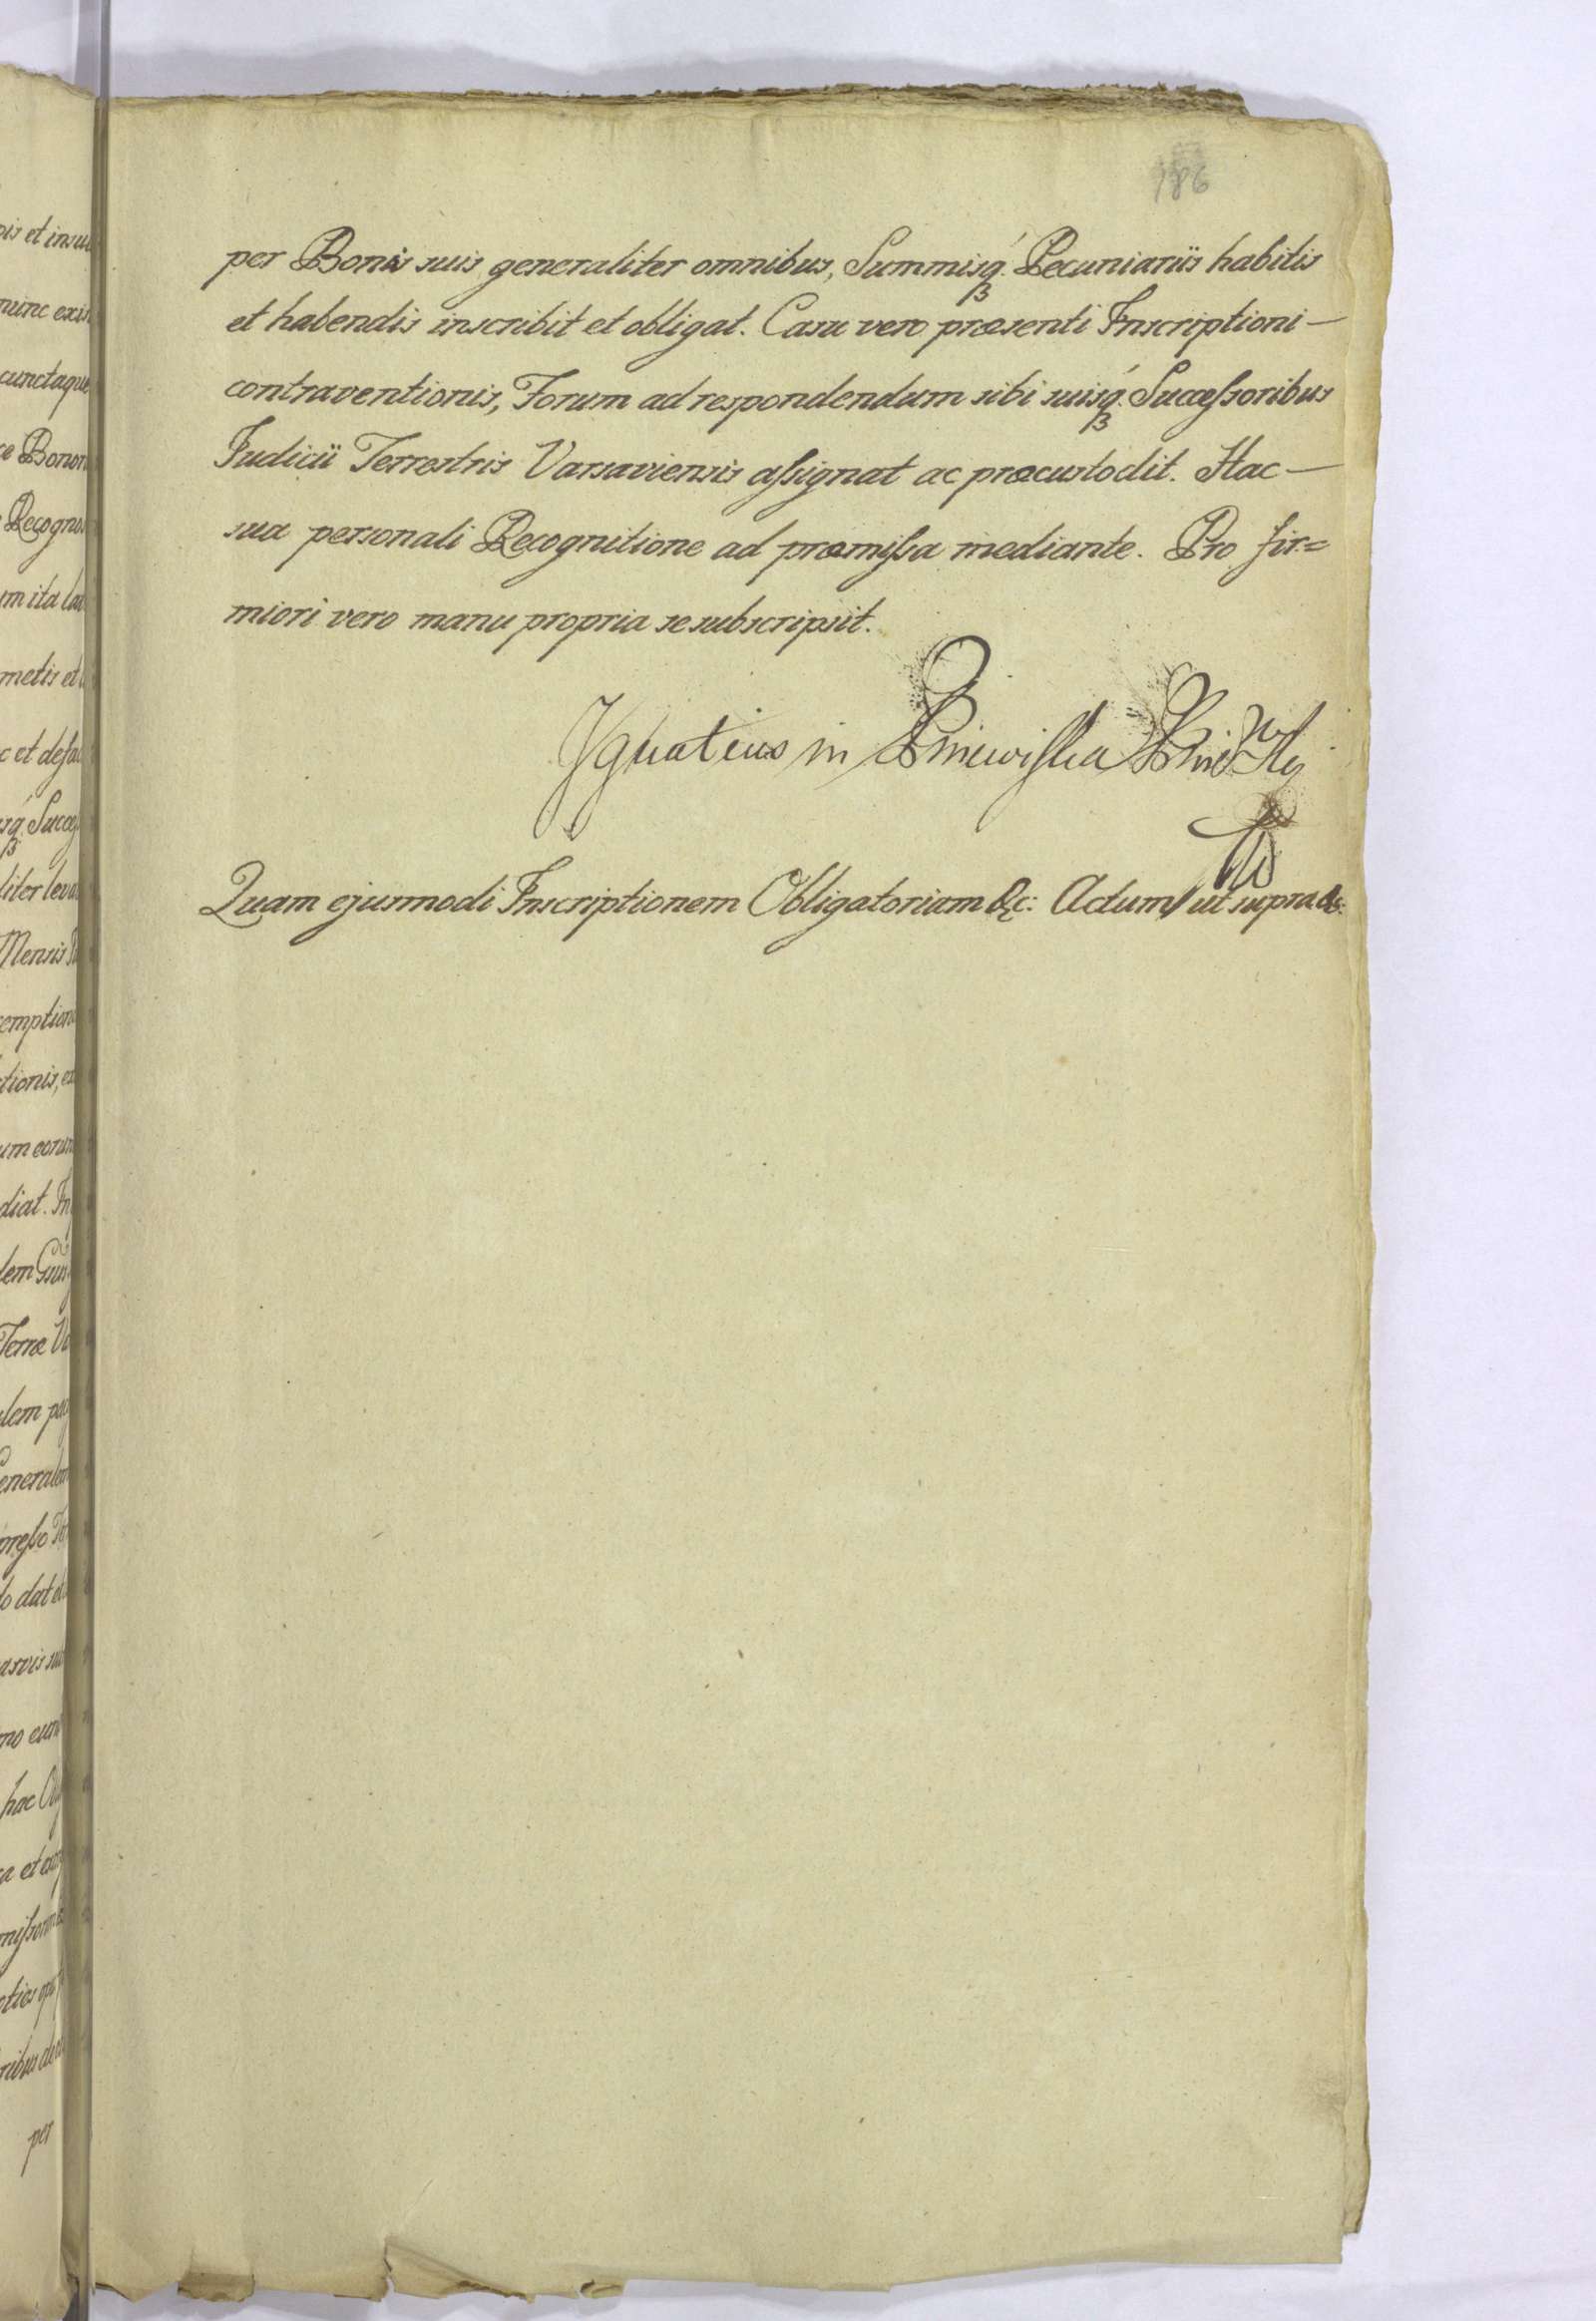 186
per Bonis suis generaliter omnibus, Summisq́. Pecuniariis habitis
et habendis inscribit et obligat. Casu vero præsenti Inscriptioni —
contraventionis, Forum ad respondendum sibi suisq́. Succeſsoribus
Iudicii Terrestris Varsaviensis aſsignat ac præcustodit. Hac —
sua personali Recognitione ad præmiſsa mediante. Pro fir=
miori vero manu propria se subscripsit.
Ignatius in
Quam ejusmodi Inscriptionem Obligatoriam &c: Actum ut supra &c:
is et insu
nunc exis
cunctaque
Bonor
Recogni
m ita
metis et
c et
sq́. Succeſ
liter
Mensis
emptioni
tionis, e
um eorum
diat. In
dem
Terræ Va
dem
Generalem
o dat et
suis
no eum
hac
a et
ribus
per